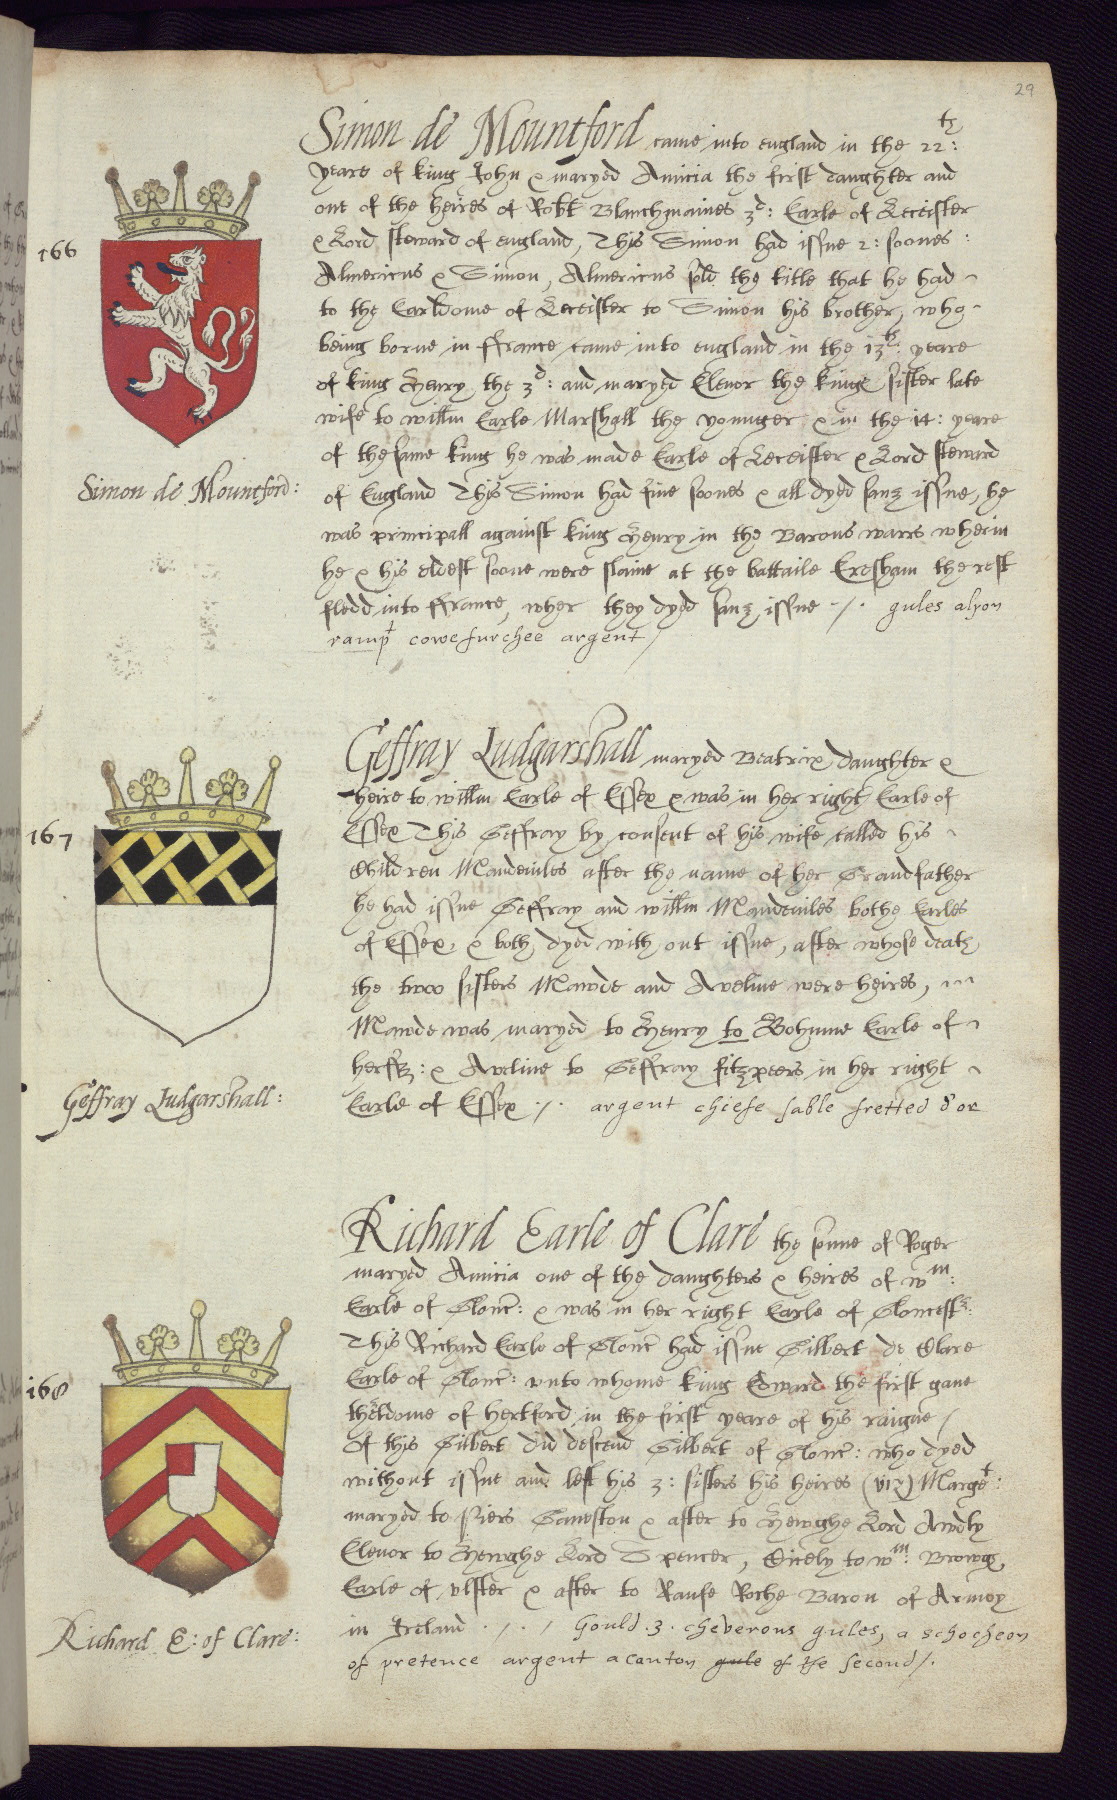 29
Simon de Mountford came into england in the 22th:
yeare of king John & maryed Amicia the first daughter and
one of the heires of Robt Blanchmaines 3d: Earle of Leceister
& Lord steward of england, This Simon had issue 2: soones:
Almericus & Simon, Almericus the title that he had
to the Earldome of Leceister to Simon his brother, who
being borne in ffrance came into england in the 13th: yeare
of king Henry the 3d: and maryed Elenor the kings sister late
wife to willm Earle Marshall the younger & in the 14: yeare
of the same king he was made Earle of Leceister & Lord steward
of England This Simon had fiue soones & all dyed sanz issue, he
was principall against king Henry in the Barons warrs wherin
he & his eldest soone were slaine at the battaile Evesham the rest
fledd into ffrance, wher they dyed sanz issue ./. gules a lyon
rampt cowe furchee argent /
166
Simon de Mountford:
Geffray Ludgarshall maryed Beatrix daughter &
heire to willm Earle of Essex & was in her right Earle of
Essex This Geffray by consent of his wife called his
Children Mandeuiles after the name of her Grandfather
he had issue Geffray and willm Mandeuiles bothe Earles
of Essex, & both dyed with out issue, after whose death
the twoo sisters Mawde and Aveline were heires,
Mawde was maryed to Henry to Bohunne Earle of
herff: & Aveline to Geffray fitzpeers in her right
Earle of Essex ./. argent chiefe sable fretted d'or
167
Geffray Ludgarshall:
Richard Earle of Clare the sonne of Roger
maryed Amicia one of the daughters & heires of wm:
Earle of Glouc: & was in her right Earle of Glocester:
This Richard Earle of Glouc had issue Gilbert de Clare
Earle of Glouc: vnto whome king Edward the first gaue
therldome of hertford in the first yeare of his raigne /
Of this Gilbert did descend Gilbert of Glouc: who dyed
without issue and left his 3: sisters his heires (viz) Marget:
maryed to Piers Gaueston & after to Hewghe Lord Awdly
Elenor to Hewghe Lord Spencer, Cicely to wm: Browgh
Earle of vlster & after to Raufe Roche Baron of Armoy
in Ireland ./. / Gould .3. cheverons gules, a schocheon
of pretence argent a canton gule of the second /.
168
Richard E: of Clare: